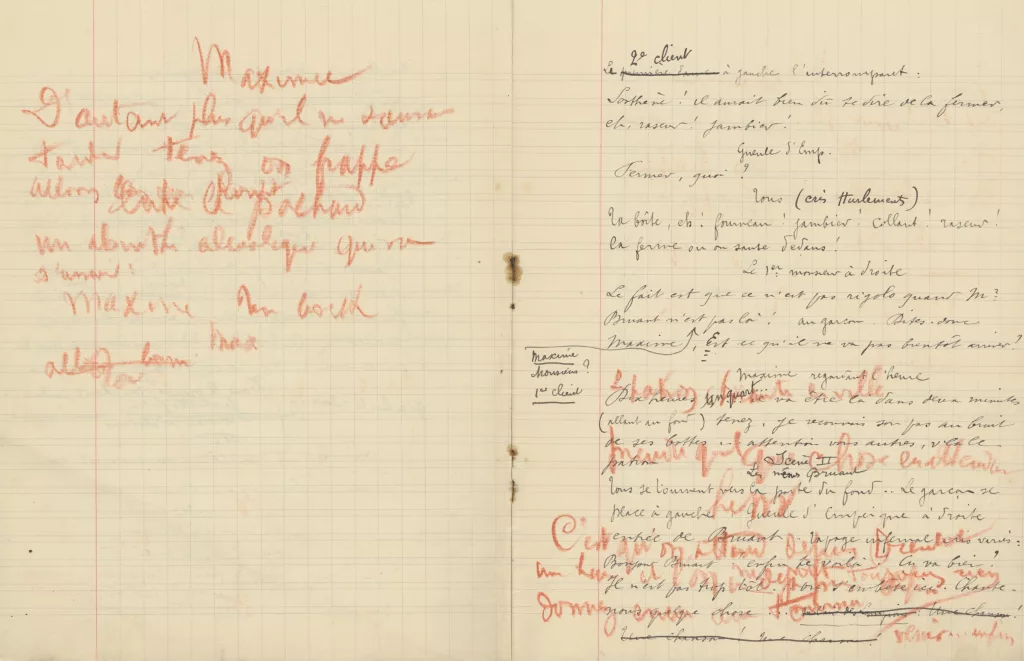 Maxime
D'autant plus qu'il ne saurait
tarder tenez on frappe
allons
un absinthe alcoolique qui va
s'
Maxime Un bock
Max
allez
2e client
Le première dame à gauche l'interrompant :
il aurait bien dû se dire de la fermer,
eh, raseur ! jambier !
Gueule d'Emp.
Fermer, quoi ?
Tous (cris Hurlements)
Ta boîte, eh ! fourneau ! jambier ! collant ! raseur !
La ferme ou on saute dedans !
Le 1er monsieur à droite
Le fait est que ce n'est pas rigolo quand M.
Bruant n'est pas là ! au garçon. Dites-donc
Maxime, Est ce qu'il ne va pas bientôt arriver ?
Maxime
Monsieur ?
1er client
Maxime regardant l'heure
Dix heures un quart... va être là dans deux minutes
(allant au fond) tenez, je reconnais son pas au bruit
de ses bottes ... attention vous autres, v'là le
patron
Scène II
Les mêmes Bruant
Tous se tournent vers la porte du fond .. Le garçon se
place à gauche Gueule d'Empeigne à droite
entrée de Bruant. Tapage infernal cris variés :
Bonjour Bruant enfin te voilà Ça va bien ?
Il n'est pas trop tôt. on s'embêtait. Chante-
nous quelque chose ... Une chanson !
Une chanson ! Une chanson !
Le patron
prendre quelque chose en attendant
C'est qu'on attend depuis
un heure et
donnez
enfin